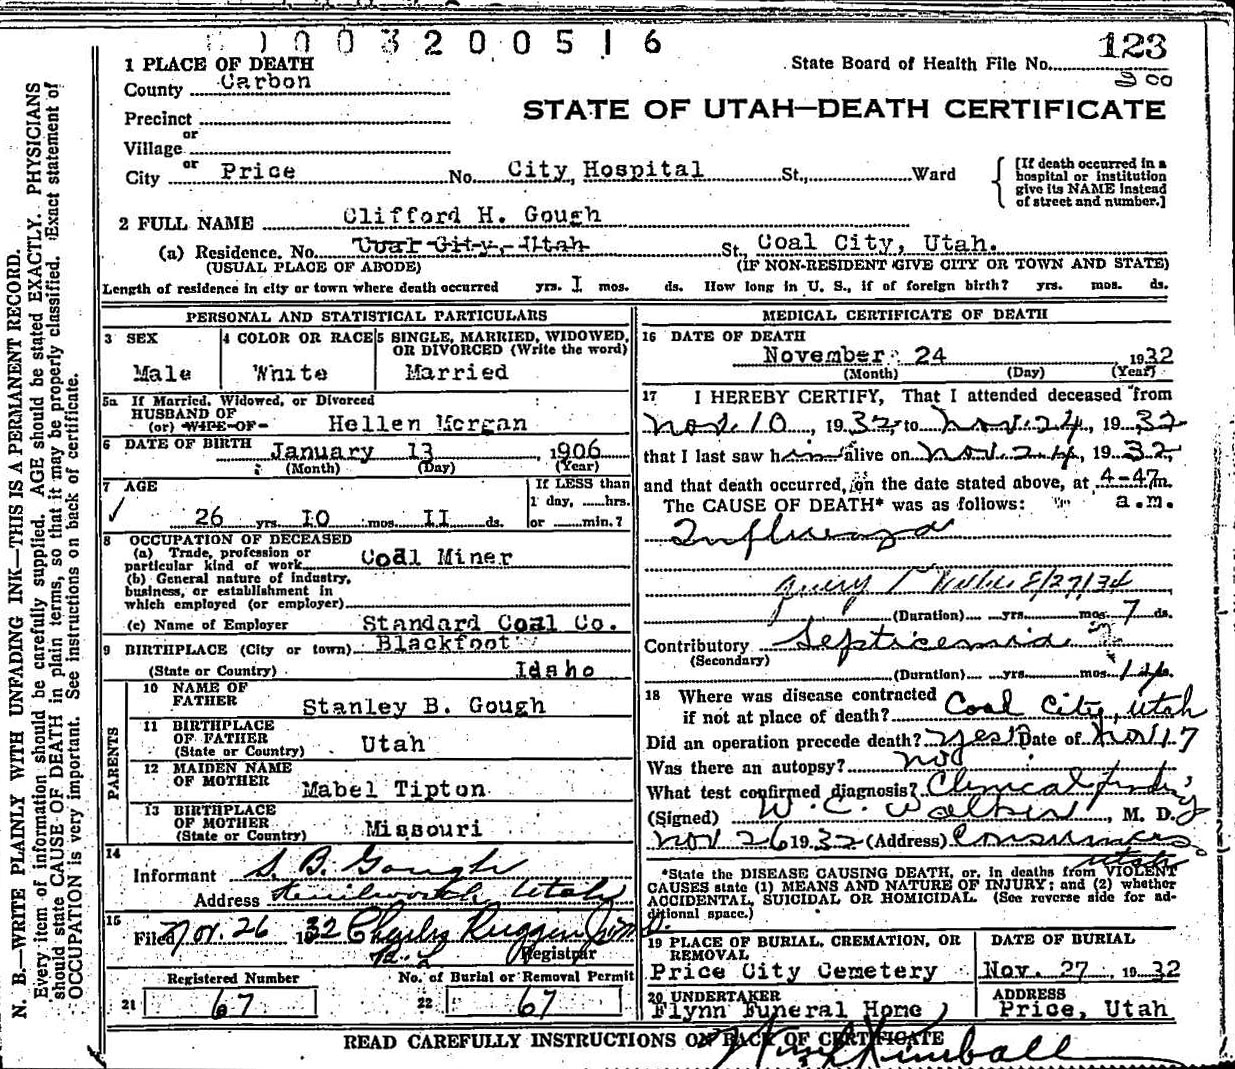 1003200516
123
State Board of Health File No.
300
1 PLACE OF DEATH
County Carbon
STATE OF UTAH—DEATH CERTIFICATE
Precinct
or
Village
or
City Price No. City Hospital St., Ward
[If death occurred in a hospital or institution give its NAME instead of street and number.]
2 FULL NAME Clifford H. Gough
(a) Residence. No. Coal City, Utah St. Coal City, Utah.
(USUAL PLACE OF ABODE) (IF NON-RESIDENT GIVE CITY OR TOWN AND STATE)
Length of residence in city or town where death occurred yrs. I mos. ds. How long in U. S., if of foreign birth? yrs. mos. ds.
PERSONAL AND STATISTICAL PARTICULARS
3 SEX
Male
4 COLOR OR RACE
White
5 SINGLE, MARRIED, WIDOWED, OR DIVORCED (Write the word)
Married
5a If Married, Widowed, or Divorced
HUSBAND OF
(or) WIFE OF Hellen Morgan
6 DATE OF BIRTH January 13, 1906
(Month) (Day) (Year)
7 AGE
26 yrs. IO mos. II ds.
If LESS than
1 day, hrs.
or min.?
8 OCCUPATION OF DECEASED
(a) Trade, profession or
particular kind of work Coal Miner
(b) General nature of industry,
business, or establishment in
which employed (or employer)
(c) Name of Employer Standard Coal Co.
9 BIRTHPLACE (City or town) Blackfoot
(State or Country) Idaho
PARENTS
10 NAME OF
FATHER Stanley B. Gough
11 BIRTHPLACE
OF FATHER
(State or Country) Utah
12 MAIDEN NAME
OF MOTHER Mabel Tipton
13 BIRTHPLACE
OF MOTHER
(State or Country) Missouri
14
Informant S. B. Gough
Address Kenilworth, Utah
15
Filed Nov. 26 1932 Charley Ruggeri
Registrar
Registered Number No. of Burial or Removal Permit
21 67 22 67
MEDICAL CERTIFICATE OF DEATH
16 DATE OF DEATH
November 24, 1932
(Month) (Day) (Year)
17 I HEREBY CERTIFY, That I attended deceased from
Nov. 10, 1932, to Nov. 24, 1932
that I last saw him alive on Nov. 24, 1932,
and that death occurred, on the date stated above, at 4-47m.
The CAUSE OF DEATH* was as follows: a.m.
Influenza
Query 8/27/34
(Duration) yrs. mos. 7 ds.
Contributory Septicemia
(Secondary)
(Duration) yrs. mos. 14
18 Where was disease contracted
if not at place of death? Coal City, Utah
Did an operation precede death? yes Date of Nov 17
Was there an autopsy? no
What test confirmed diagnosis? Clinical finding
(Signed) W. C. Walker, M. D.
Nov 26 1932 (Address) Consumers
Utah
*State the DISEASE CAUSING DEATH, or, in deaths from VIOLENT
CAUSES state (1) MEANS AND NATURE OF INJURY; and (2) whether
ACCIDENTAL, SUICIDAL OR HOMICIDAL. (See reverse side for ad-
ditional space.)
19 PLACE OF BURIAL, CREMATION, OR
REMOVAL
Price City Cemetery
DATE OF BURIAL
Nov. 27, 1932
20 UNDERTAKER
Flynn Funeral Home
ADDRESS
Price, Utah
READ CAREFULLY INSTRUCTIONS ON BACK OF CERTIFICATE
Kimball
N. B.—WRITE PLAINLY WITH UNFADING INK—THIS IS A PERMANENT RECORD.
Every item of information should be carefully supplied. AGE should be stated EXACTLY. PHYSICIANS
should state CAUSE OF DEATH in plain terms, so that it may be properly classified. Exact statement of
OCCUPATION is very important. See instructions on back of certificate.